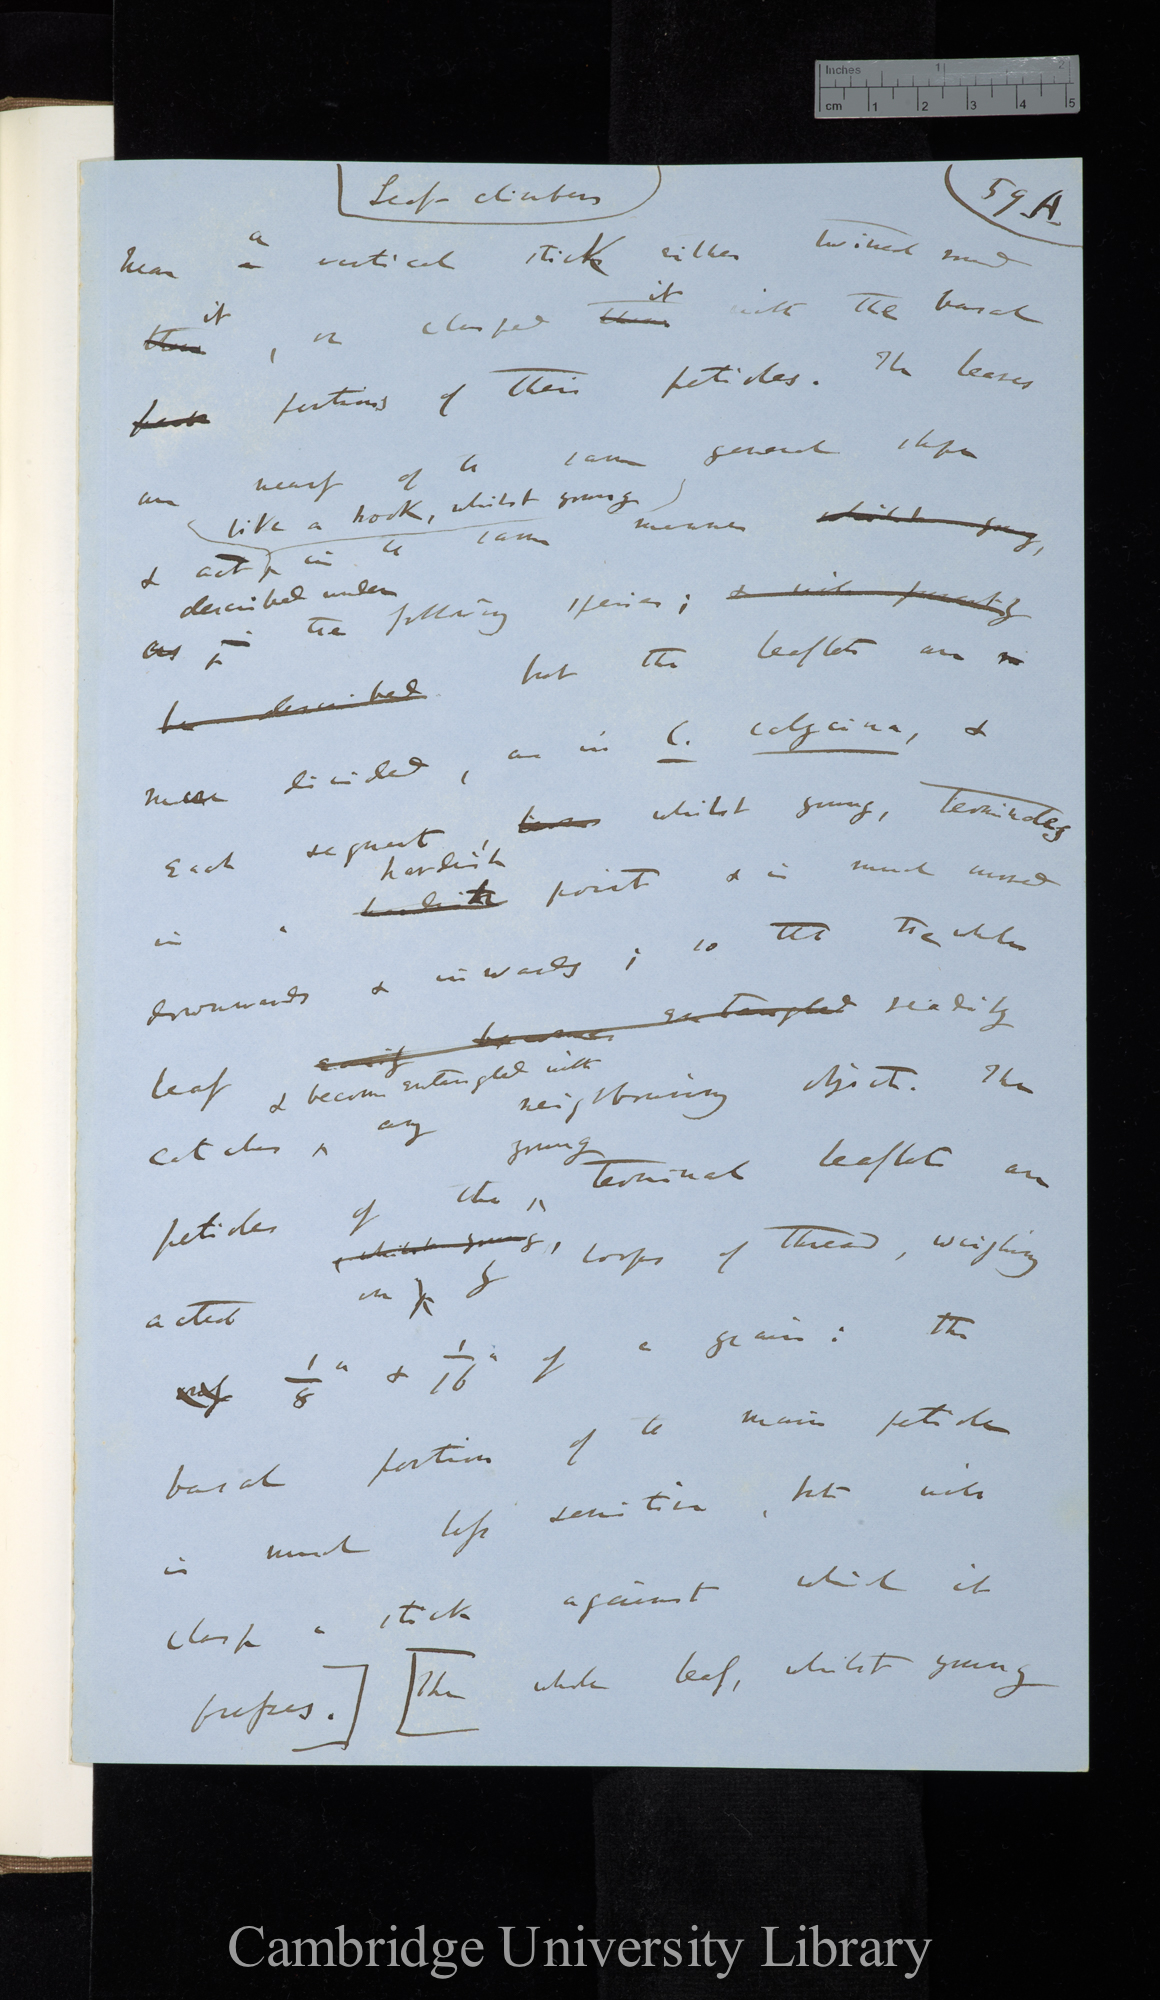 Inches 1 2
cm 1 2 3 4 5
Leaf-climbers
59 A
a
near a vertical stick either twined round
it it
them, or clasped them with the basal
portions of their petioles. The leaves
are nearly of the same general shape
like a hook, whilst young
& act in the same manner whilst young,
described under
as in the following species; & will presently
be described but the leaflets are
more divided, as in C. calycina, &
each segment, whilst young, terminates
hardish
in a hardish point & is much curved
downwards & inwards; so that the whole
leaf easily becomes entangled readily
& become entangled with
catches any neighbouring object. The
young
petioles of the terminal leaflets are
whilst young,
acted on by loops of thread, weighing
only 1/8 & 1/16 of a grain: the
basal portion of the main petiole
is much less sensitive, but will
clasp a stick against which it
presses.] [The whole leaf, whilst young
Cambridge University Library